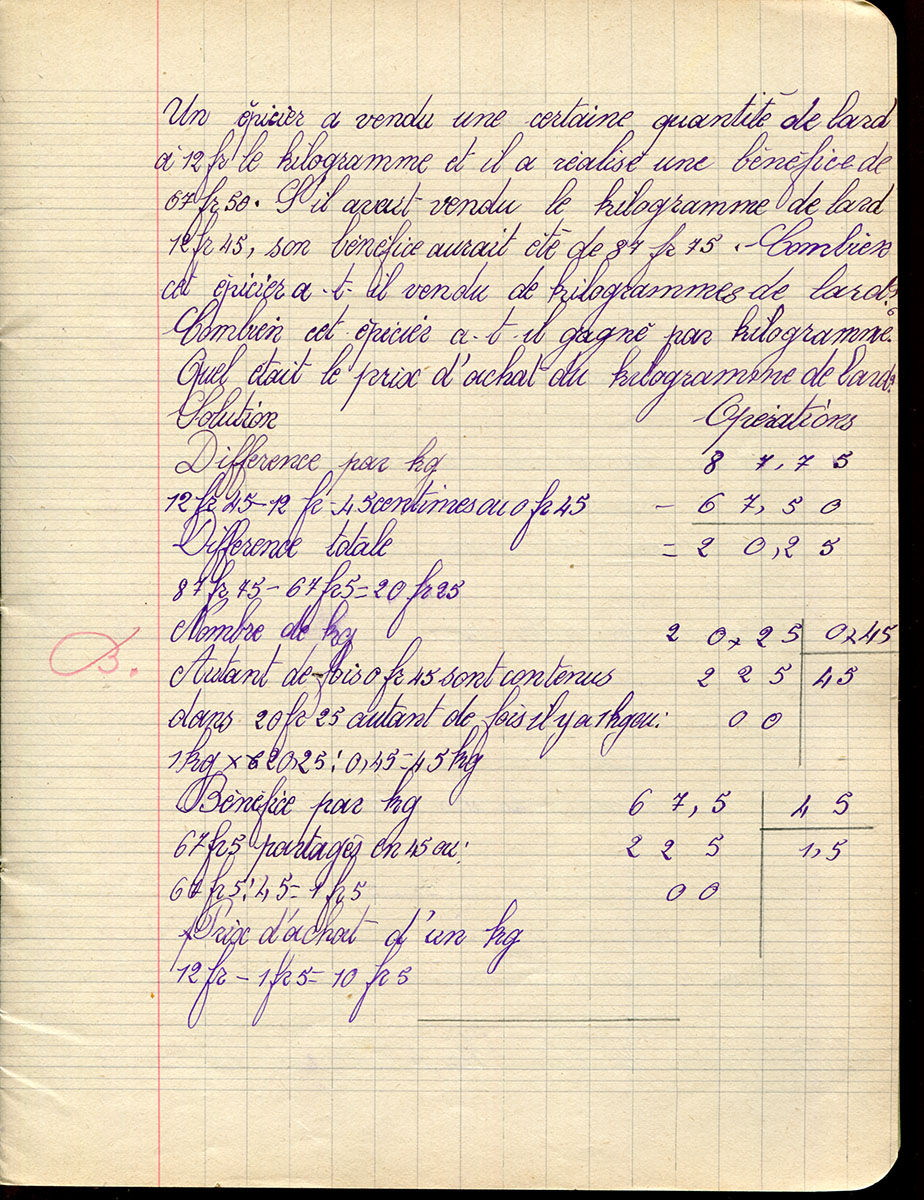 Un épicier a vendu une certaine quantité de lard
à 12 fr le kilogramme et il a réalisé une bénéfice de
67 fr 50. S'il avait vendu le kilogramme de lard
12 fr 45, son bénéfice aurait été de 87 fr 75. - Combien
cet épicier a-t-il vendu de kilogrammes de lard?
Combien cet épicier a-t-il gagné par kilogramme.
Quel était le prix d'achat du kilogramme de lard?
Solution Opérations
Différence par kg 87,75
12 fr 45 - 12 fr = 45 centimes ou 0 fr 45 - 67,50
Différence totale = 20,25
87 fr 75 - 67 fr 5 = 20 fr 25
Nombre de kg 20,25 0,45
B.
Autant de fois 0 fr 45 sont contenus 225 45
dans 20 fr 25 autant de fois il y a 1 kg ou: 00
1 kg x 20,25 : 0,45 = 45 kg
Bénéfice par kg 67,5 45
67 fr 5 partagés en 45 ou: 225 1,5
67 fr 5 : 45 = 1 fr 5 00
Prix d'achat d'un kg
12 fr - 1 fr 5 = 10 fr 5